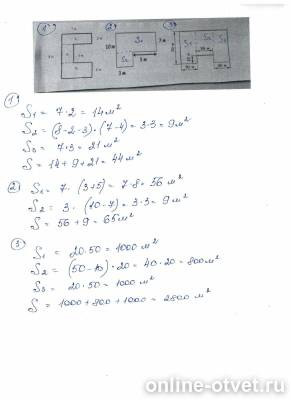 1) 2) 3)
S₁ S₂ S₃
10 м 7 м
S₁
S₂
5 м
3 м
1) S₁ = 7·2 = 14 м²
S₂ = (8-2-3)·(7-4) = 3·3 = 9 м²
S₃ = 7·3 = 21 м²
S = 14 + 9 + 21 = 44 м²
2) S₁ = 7·(3+5) = 7·8 = 56 м²
S₂ = 3·(10-7) = 3·3 = 9 м²
S = 56 + 9 = 65 м²
3) S₁ = 20·50 = 1000 м²
S₂ = (50-10)·20 = 40·20 = 800 м²
S₃ = 20·50 = 1000 м²
S = 1000 + 800 + 1000 = 2800 м²
online-otvet.ru